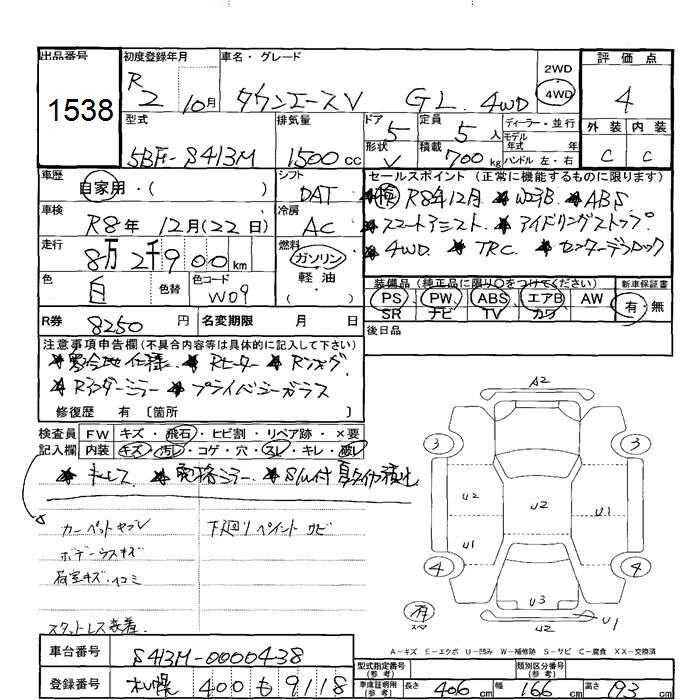 出品番号
1538
初度登録年月
R2 10月
車名・グレード
タウンエースV GL 4WD
2WD
4WD
評価点
4
外装 内装
C C
型式
5BF-S413M
排気量
1500cc
ドア
5
形状
V
定員
5人
積載
700kg
ディーラー・並行
モデル
年式 年
ハンドル 左・右
車歴
自家用・( )
シフト
DAT
車検
R8年12月(22日)
冷房
AC
走行
8万2千900km
燃料
ガソリン
軽油
( )
色
白
色替
色コード
W09
R券 8250円
名変期限 月 日
セールスポイント (正常に機能するものに限ります)
検R8年12月 ★WエアB ★ABS
★スマートアシスト ★アイドリングストップ
★4WD ★TRC ★センターデフロック
装備品 (純正品に限り○をつけてください)
PS PW ABS エアB AW
SR ナビ TV カワ
新車保証書
有・無
後日品
注意事項申告欄(不具合内容等は具体的に記入して下さい)
★寒冷地仕様 ★Rヒーター ★Rソナー
★Rアンダーミラー ★プライバシーガラス
修復歴 有 〔箇所 〕
検査員
記入欄
FW キズ・飛石・ヒビ割・リペア跡・×要
内装 キズ・汚レ・コゲ・穴・スレ・キレ・破レ
★キーレス ★電格ミラー ★S/W付 夏タイヤ積込
カーペットヤブレ
下廻りペイント サビ
ボデーウスキズ
荷室キズ・凹ミ
スタットレス装着
A2
3
3
U2
U2
U1
U1
4
4
U3
U1
U2
有
スペア
A-キズ E-エクボ U-凹み W-補修跡 S-サビ C-腐食 XX-交換済
車台番号
S413M-0000438
登録番号
札幌 400 も 9118
型式指定番号
(参考)
類別区分番号
(参考)
車庫証明用
(参考)
長さ 406cm 幅 166cm 高さ 193cm